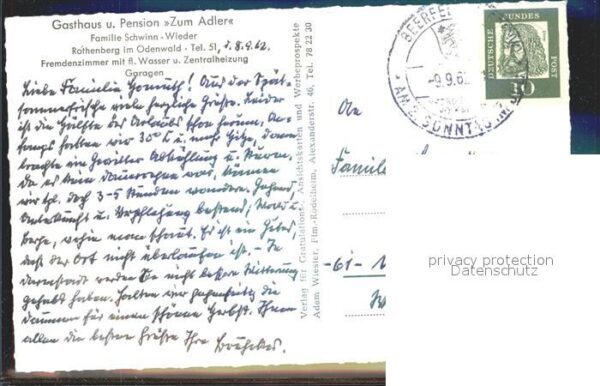 Gasthaus u. Pension »Zum Adler«
Familie Schwinn - Wieder
Rothenberg im Odenwald - Tel. 51, 8.9.62.
Fremdenzimmer mit fl. Wasser u. Zentralheizung
Garagen
Liebe Familie! Aus der Spät-
sommerfrische viele herzliche Grüße. Leider
ist die Hälfte des Urlaubs schon herum. An-
fangs hatten wir 30° C u. mehr Hitze, dann
brachte ein Gewitter Abkühlung u. Sturm.
Da es kein Dauerregen war, können
wir tgl. doch 3-5 Stunden wandern.
Unterkunft u. Verpflegung bestens, Wald u.
Berge, wohin man schaut. Es ist ein
daß der Ort nicht überlaufen ist. - In
Darmstadt werden Sie nicht bessere Witterung
gehabt haben. Halten wir gegenseitig die
Daumen für einen schönen Herbst. Ihnen
allen die besten Grüße Ihre
Verlag für Gratulations-, Ansichtskarten und Werbeprospekte
Adam Wiester, Ffm.-Rödelheim, Alexanderstr. 46, Tel. 78 22 30
BEERFEL
-9.9.62
AM SONNTAG
DEUTSCHE BUNDES POST
10
An
Famil
-61-
privacy protection
Datenschutz